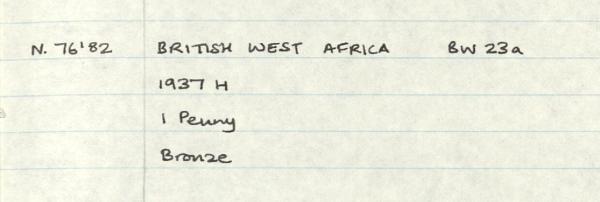 N. 76'82 BRITISH WEST AFRICA BW 23a
1937 H
1 Penny
Bronze